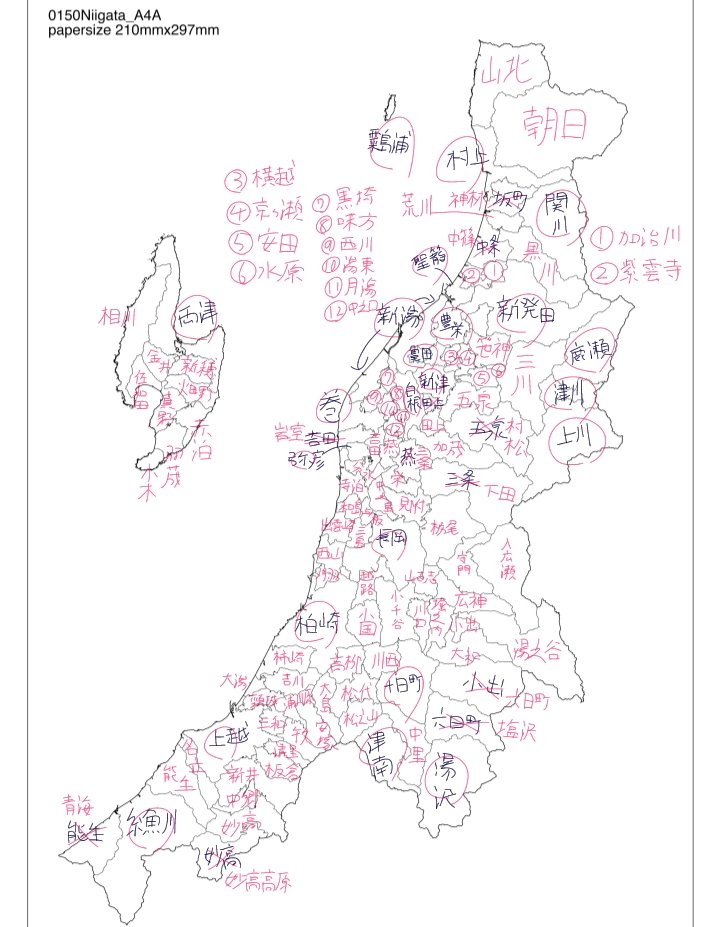 0150Niigata_A4A
papersize 210mmx297mm
山北
朝日
粟島浦
村上
③横越
④京ヶ瀬
⑤安田
⑥水原
⑦黒埼
⑧味方
⑨西川
⑩潟東
⑪月潟
⑫中之口
荒川
神林
坂町
関川
①加治川
②紫雲寺
中条
黒川
聖籠
②
①
相川
両津
新潟
豊栄
新発田
金井
新穂
畑野
真野
赤泊
小木
③
④
笹神
三川
鹿瀬
⑤
⑥
津川
上川
⑦
⑧
⑨
新津
白根
巻
五泉
村松
岩室
吉田
弥彦
田上
加茂
燕
三条
下田
栄
寺泊
和島
見附
出雲崎
栃尾
長岡
西山
刈羽
越路
小千谷
川口
守門
入広瀬
広神
小出
柏崎
小国
湯之谷
大和
柿崎
高柳
川西
大潟
吉川
大島
松代
十日町
小出
六日町
六日町
塩沢
頸城
浦川原
松之山
三和
牧
安塚
上越
清里
板倉
津南
中里
湯沢
名立
能生
新井
中郷
妙高
青海
能生
糸魚川
妙高
妙高高原